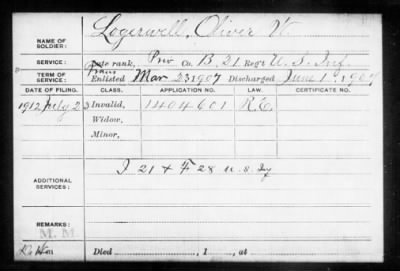 NAME OF SOLDIER: Logerwell, Oliver W.
SERVICE: Late rank, Priv Co. B, 21 Reg't U.S. Inf.
TERM OF SERVICE: Enlisted Mar 23 1907 Discharged June 1, 1907
DATE OF FILING. CLASS. APPLICATION NO. LAW. CERTIFICATE NO.
1912 July 23 Invalid, 1404601 R.E.
Widow,
Minor,
ADDITIONAL SERVICES: I 21 + F 28 U.S. Inf
REMARKS:
M. M.
Died , 1 , at